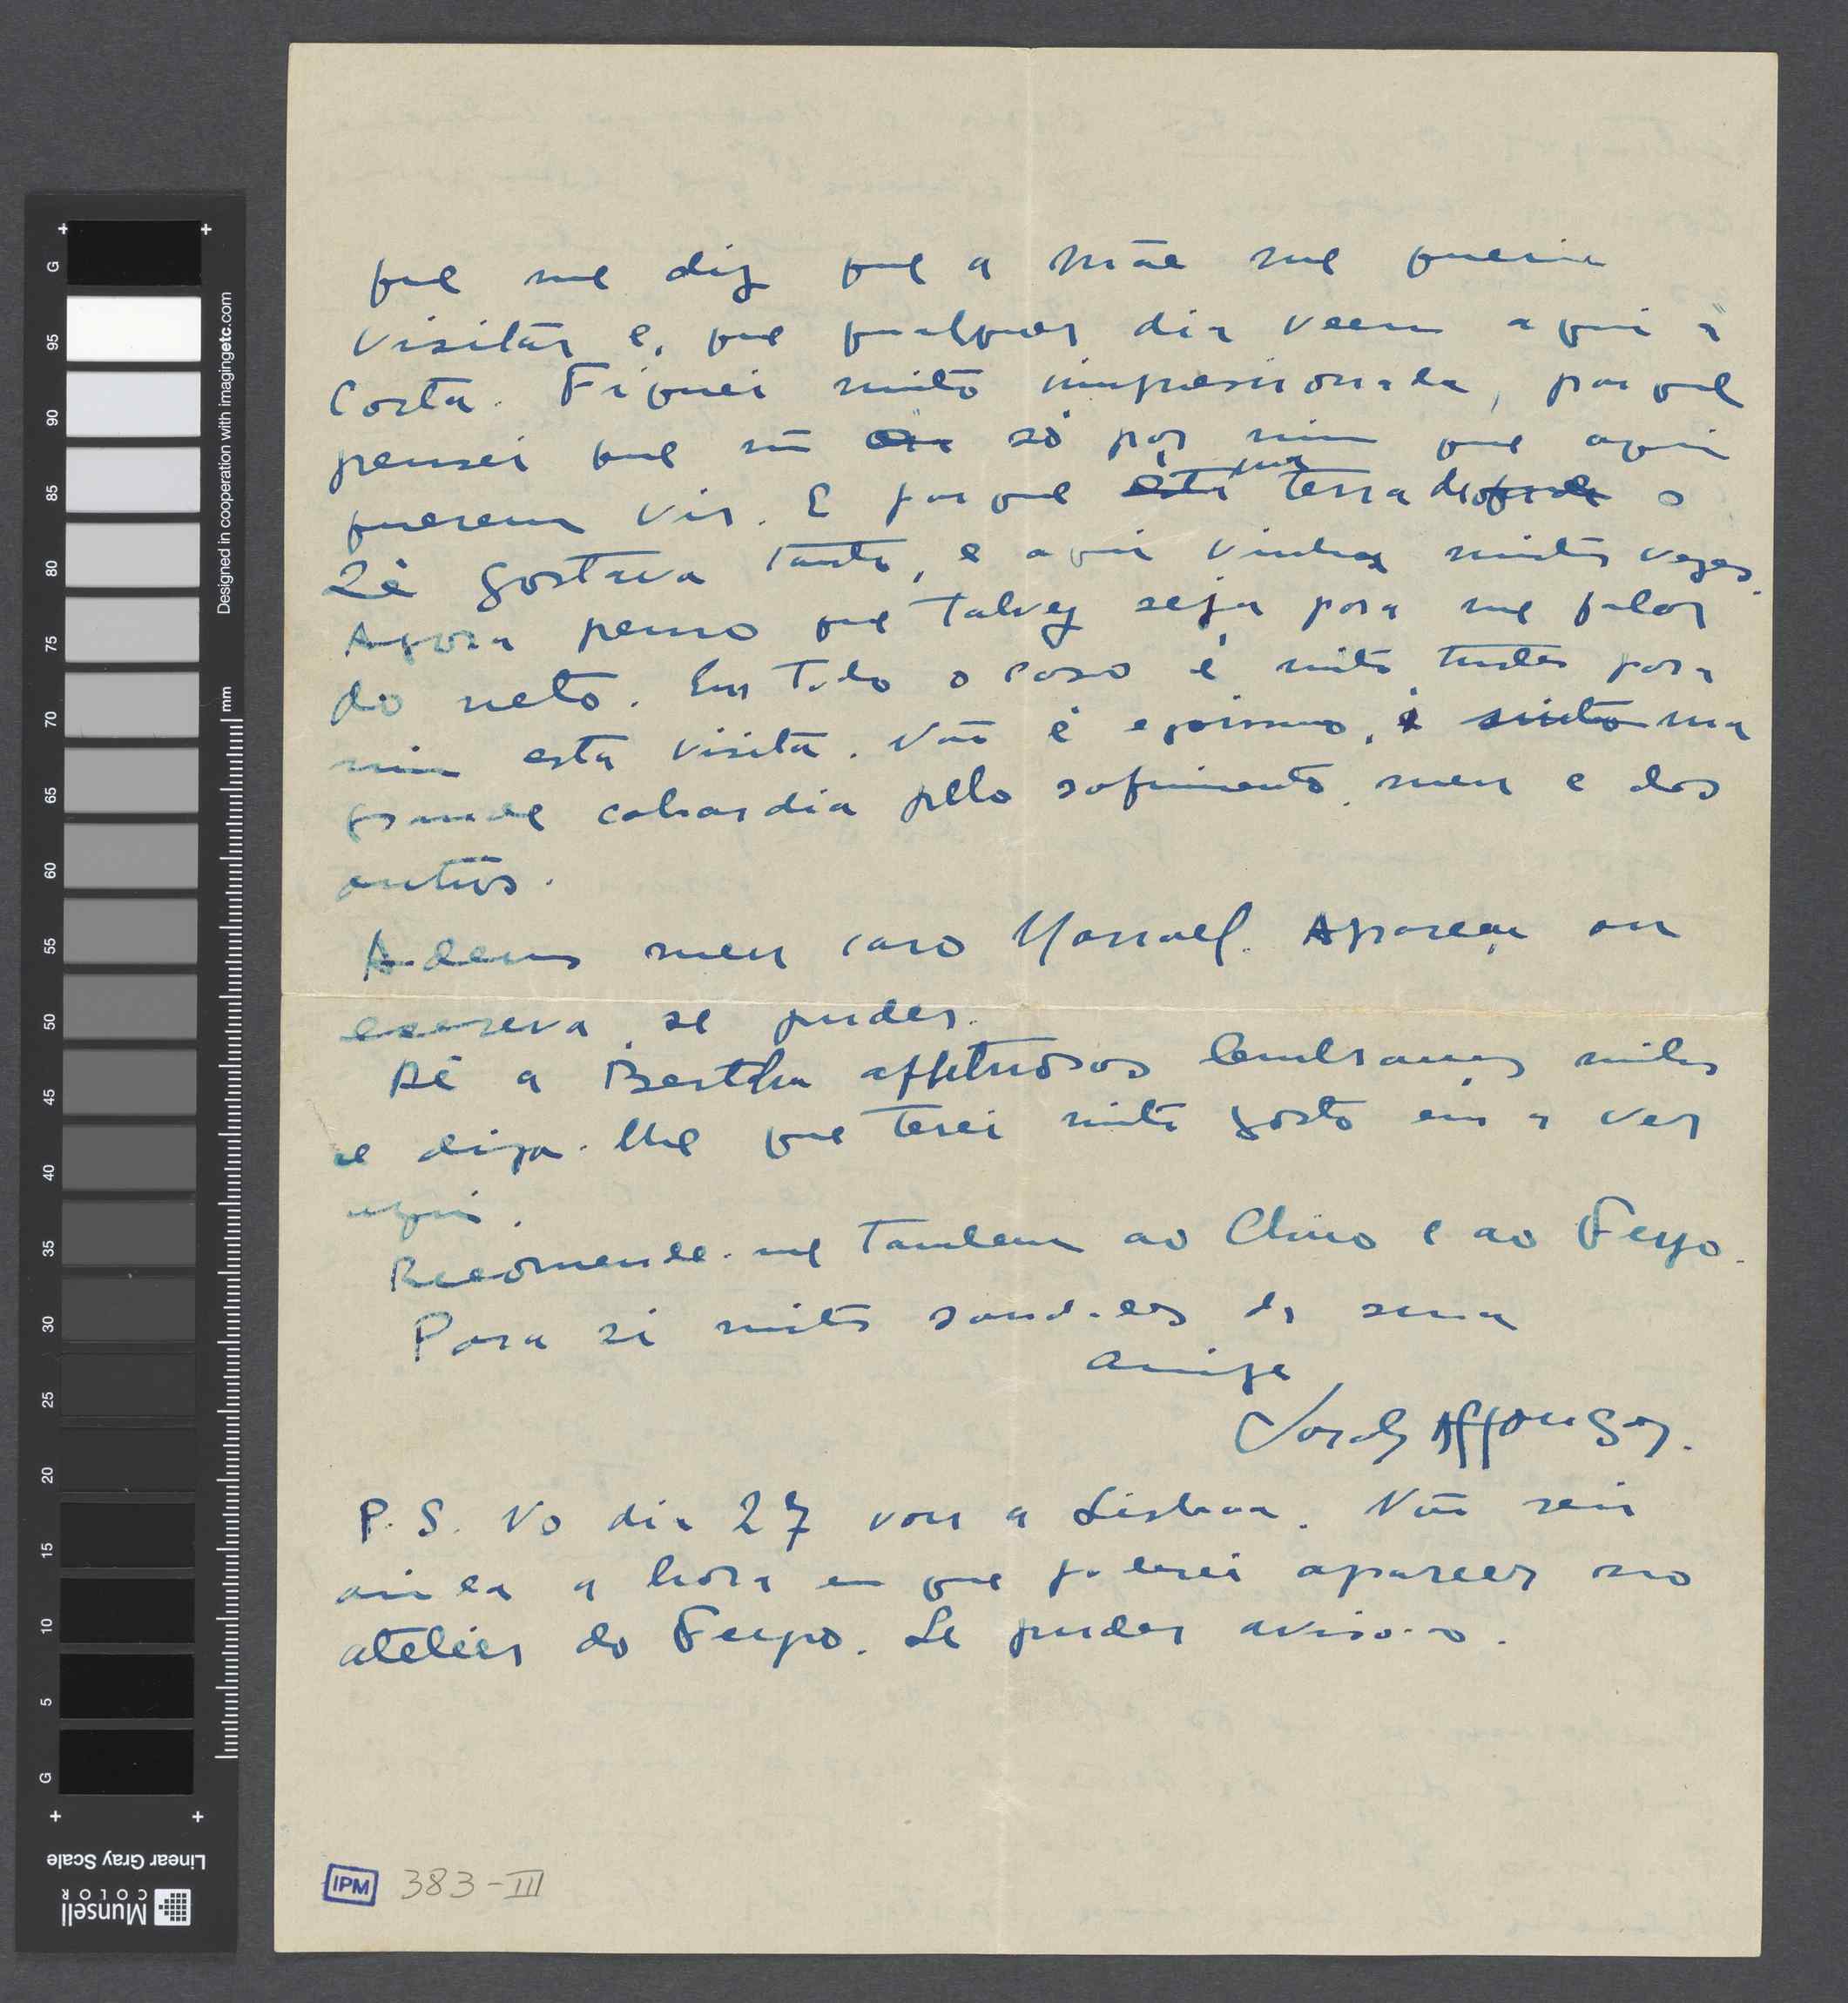 que me diz que a Mãe me queria
visitar e, que qualquer dia veem aqui à
Costa. Fiquei muito impressionada, porque
pensei que só por mim que aqui
querem vir. E porque esta terra o
Zé gostava tanto, e aqui vinha muitas vezes.
Agora penso que talvez seja para me falar
do neto. Em todo o caso é muito triste para
mim esta visita. Não é egoismo, é sinto uma
grande cobardia pelo sofrimento, meu e dos
outros.
Adeus meu caro Manoel. Apareça ou
escreva, se puder.
Dê a Bertha affetuosas lembranças minhas
e diga-lhe que terei muito gosto em a ver
aqui.
Recomende-me tambem ao Chico e ao Feyo.
Para si muitas saudades da sua
amiga
Sarah Affonso.
P.S. No dia 27 vou a Lisboa. Não sei
ainda a hora em que poderei aparecer no
atelier do Feyo. Se puder aviso-o.
IPM 383-III
G
95
90
85
80
75
70
65
60
55
50
45
40
35
30
25
20
15
10
5
G
mm
Designed in cooperation with imagingetc.com
Linear Gray Scale
Munsell
COLOR